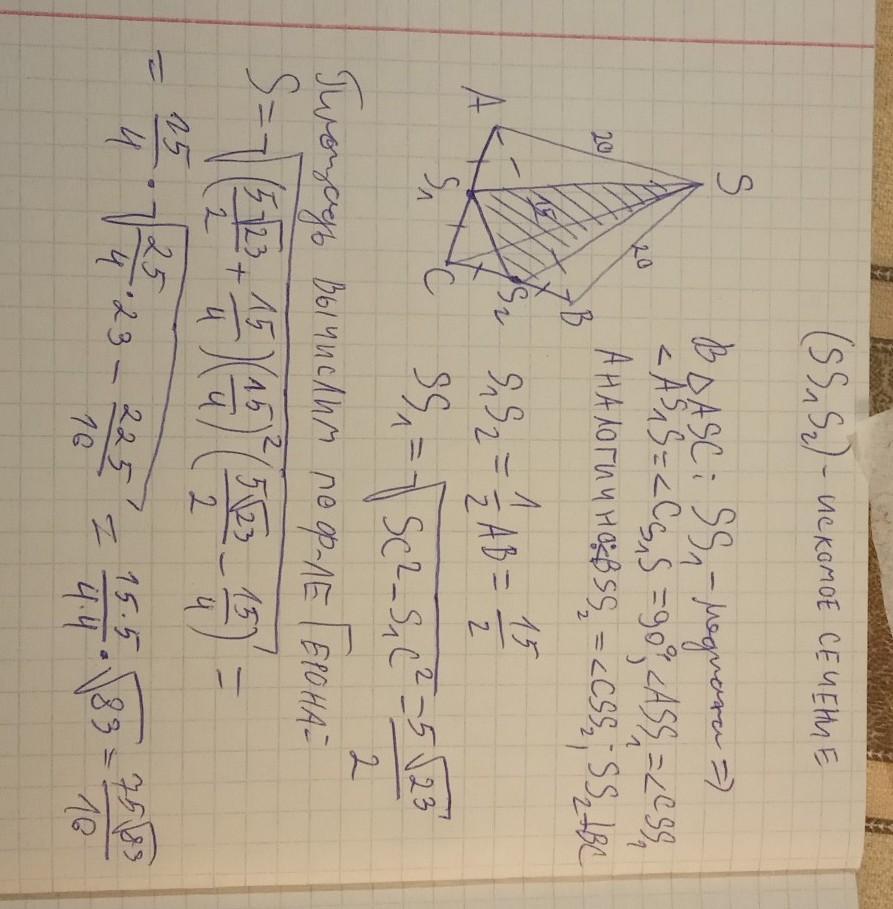 (SS₁S₂) - искомое сечение
S
20
20
15
A
S₁
C
S₂
B
В △ASC: SS₁ - медиана ⇒
∠AS₁S = ∠CS₁S = 90°, ∠ASS₁ = ∠CSS₁
Аналогично: ∠BSS₂ = ∠CSS₂, SS₂⊥BC
S₁S₂ = 1/2 AB = 15/2
SS₁ = √(SC² - S₁C²) = 5√23/2
Площадь вычислим по ф-ле Герона:
S = √((5√23/2 + 15/4)(15/4)²(5√23/2 - 15/4)) =
= 15/4 · √(25/4 · 23 - 225/16) = 15·5/4·4 · √83 = 75√83/16